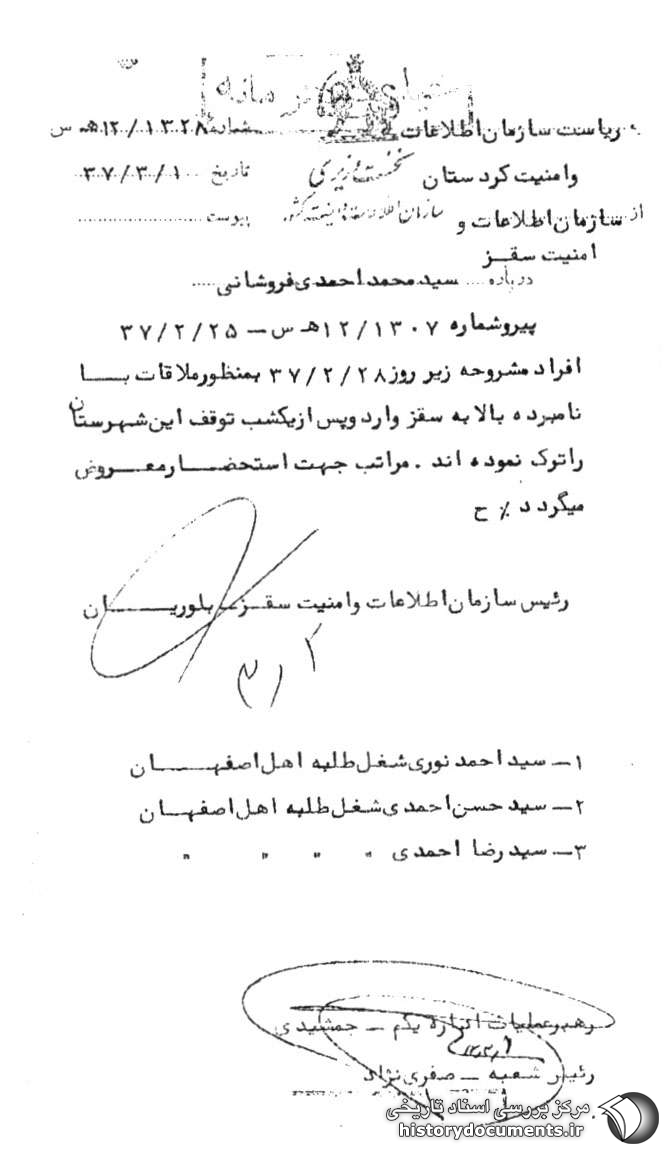 محرمانه
به ریاست سازمان اطلاعات شماره ۱۲/۱۳۲۸ هـ س
و امنیت کردستان نخست وزیری تاریخ ۳۷/۳/۱۰
از سازمان اطلاعات و سازمان اطلاعات و امنیت کشور پیوست
امنیت سقــز
درباره سید محمد احمدی فروشانی
پیرو شماره ۱۲/۱۳۰۷ هـ س – ۳۷/۲/۲۵
افراد مشروحه زیر روز ۳۷/۲/۲۸ بمنظور ملاقات بــا
نامبرده بالا به سقز وارد و پس از یکشب توقف این شهرستان
را ترک نموده اند . مراتب جهت استحضــار معــروض
میگردد ٪ ح
رئیس سازمان اطلاعات و امنیت سقــز – بلوریــــان
۱– سید احمد نوری شغل طلبه اهل اصفهــــان
۲– سید حسن احمدی شغل طلبه اهل اصفهــان
۳– سید رضا احمدی " " " "
رهبر عملیات اداره یکم – جمشیدی
رئیس شعبه – صفری نژاد
مرکز بررسی اسناد تاریخی
historydocuments.ir